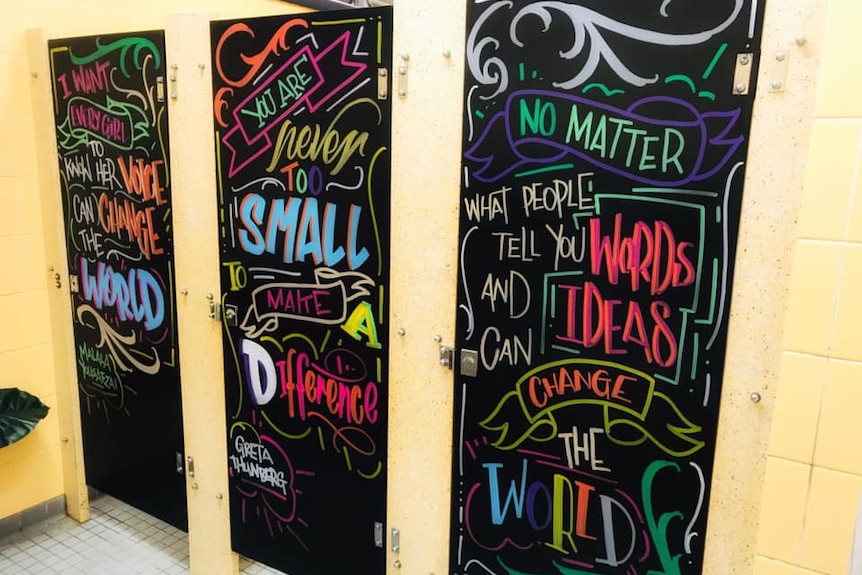 I WANT
EVERY GIRL
TO
KNOW HER VOICE
CAN CHANGE
THE
WORLD
MALALA
YOUSAFZAI
YOU ARE
never
TOO
SMALL
TO
MAKE
A
Difference
GRETA
THUNBERG
NO MATTER
WHAT PEOPLE
TELL YOU WORDS
AND IDEAS
CAN
CHANGE
THE
WORLD